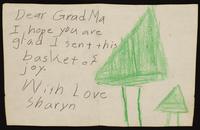 Dear GradMa
I hope you are
glad I sent this
basket of
joy.
With Love
Sharyn